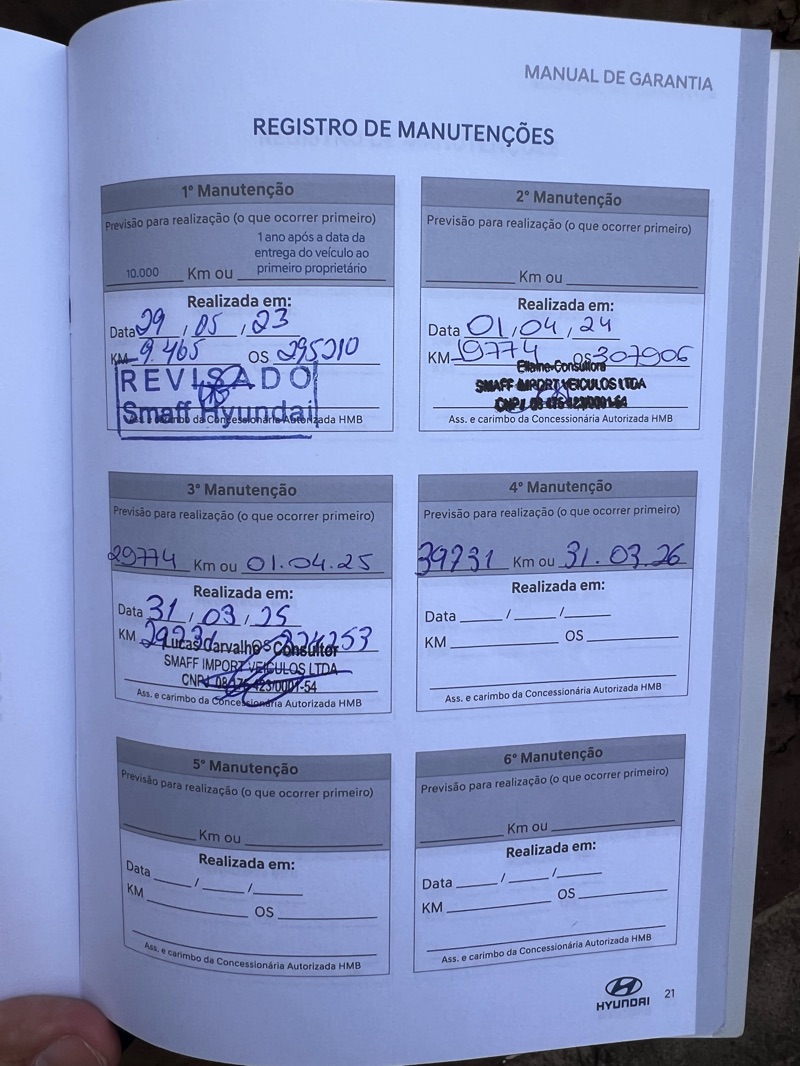 MANUAL DE GARANTIA
REGISTRO DE MANUTENÇÕES
1º Manutenção
Previsão para realização (o que ocorrer primeiro)
1 ano após a data da
entrega do veículo ao
10.000 Km ou primeiro proprietário
Realizada em:
Data 29 / 05 / 23
KM 9.465 OS 295210
REVISADO
Smaff Hyundai
Ass. e carimbo da Concessionária Autorizada HMB
2º Manutenção
Previsão para realização (o que ocorrer primeiro)
Km ou
Realizada em:
Data 01 / 04 / 24
KM 19774 OS 307906
Ellaine-Consultora
SMAFF IMPORT VEICULOS LTDA
CNPJ 08 175 423/0001-54
Ass. e carimbo da Concessionária Autorizada HMB
3º Manutenção
Previsão para realização (o que ocorrer primeiro)
29774 Km ou 01.04.25
Realizada em:
Data 31 / 03 / 25
KM OS
Lucas Carvalho Consultor
SMAFF IMPORT VEICULOS LTDA
CNPJ 08 175 423/0001-54
Ass. e carimbo da Concessionária Autorizada HMB
4º Manutenção
Previsão para realização (o que ocorrer primeiro)
39231 Km ou 31.03.26
Realizada em:
Data / /
KM OS
Ass. e carimbo da Concessionária Autorizada HMB
5º Manutenção
Previsão para realização (o que ocorrer primeiro)
Km ou
Realizada em:
Data / /
KM OS
Ass. e carimbo da Concessionária Autorizada HMB
6º Manutenção
Previsão para realização (o que ocorrer primeiro)
Km ou
Realizada em:
Data / /
KM OS
Ass. e carimbo da Concessionária Autorizada HMB
HYUNDAI
21